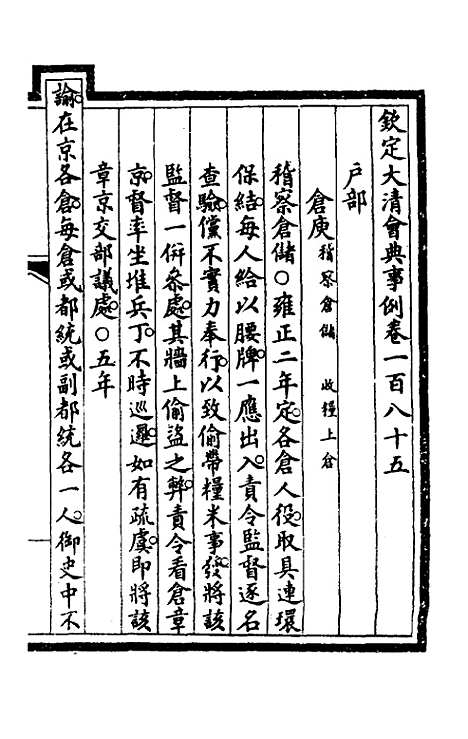 欽定大清會典事例卷一百八十五
戶部
倉庾 稽察倉儲 收糧上倉
稽察倉儲○雍正二年定。各倉人役。取具連環
保結。每人給以腰牌。一應出入。責令監督逐名
查驗。儻不實力奉行。以致偷帶糧米事發。將該
監督一併參處。其牆上偷盜之弊。責令看倉章
京。督率坐堆兵丁。不時巡邏。如有疏虞。即將該
章京交部議處。○五年
諭。在京各倉。每倉或都統或副都統各一人。御史中不